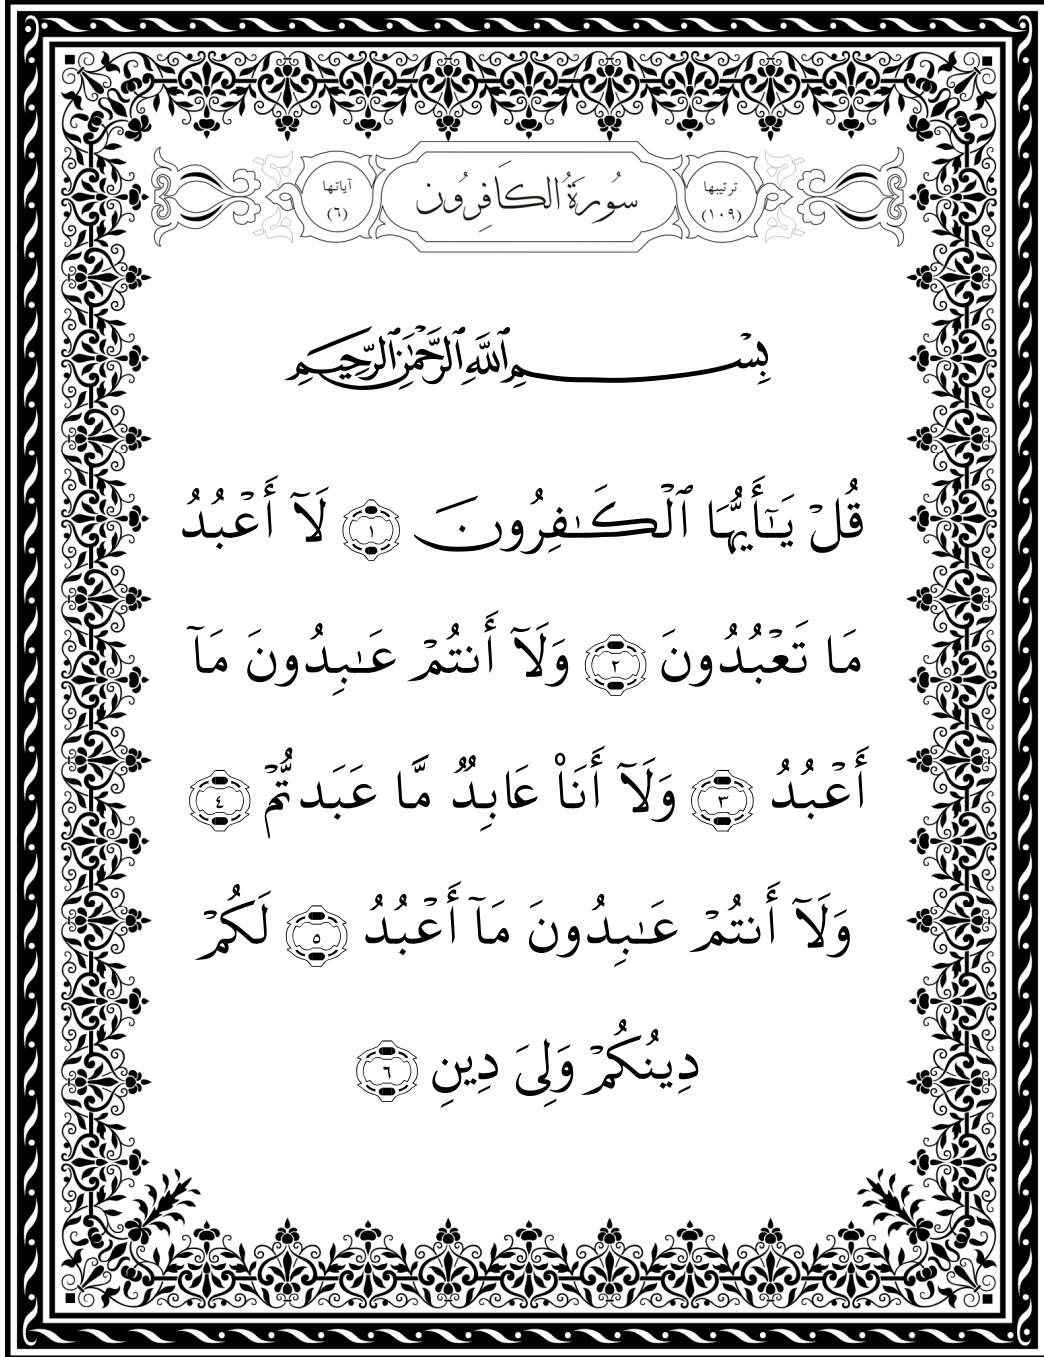 ترتيبها
(١٠٩)
سُورَةُ الكَافِرُون
آياتها
(٦)
بِسْمِ ٱللَّهِ ٱلرَّحْمَٰنِ ٱلرَّحِيمِ
قُلْ يَـٰٓأَيُّهَا ٱلْكَـٰفِرُونَ ١ لَآ أَعْبُدُ
مَا تَعْبُدُونَ ٢ وَلَآ أَنتُمْ عَـٰبِدُونَ مَآ
أَعْبُدُ ٣ وَلَآ أَنَا۠ عَابِدٌ مَّا عَبَدتُّمْ ٤
وَلَآ أَنتُمْ عَـٰبِدُونَ مَآ أَعْبُدُ ٥ لَكُمْ
دِينُكُمْ وَلِىَ دِينِ ٦